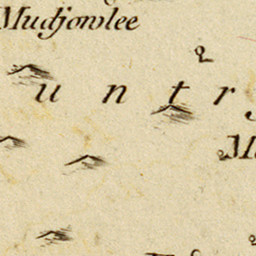 Mudjowlee
2
u n t r
M